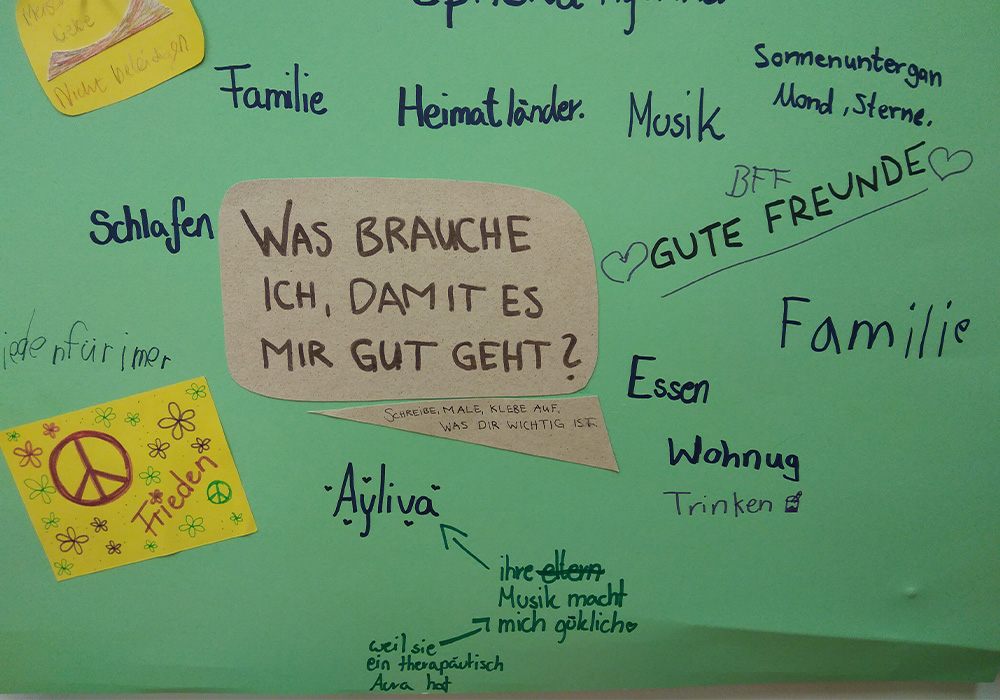 Nicht beleidigen
Familie
Heimatländer.
Musik
Sonnenuntergan
Mond, Sterne.
BFF
GUTE FREUNDE
Schlafen
WAS BRAUCHE
ICH, DAMIT ES
MIR GUT GEHT?
SCHREIBE, MALE, KLEBE AUF,
WAS DIR WICHTIG IST.
fürimer
Familie
Essen
Wohnug
Trinken
Frieden
Ayliva
ihre eltern
Musik macht
mich güklich
weil sie
ein therapäutisch
Aura hat